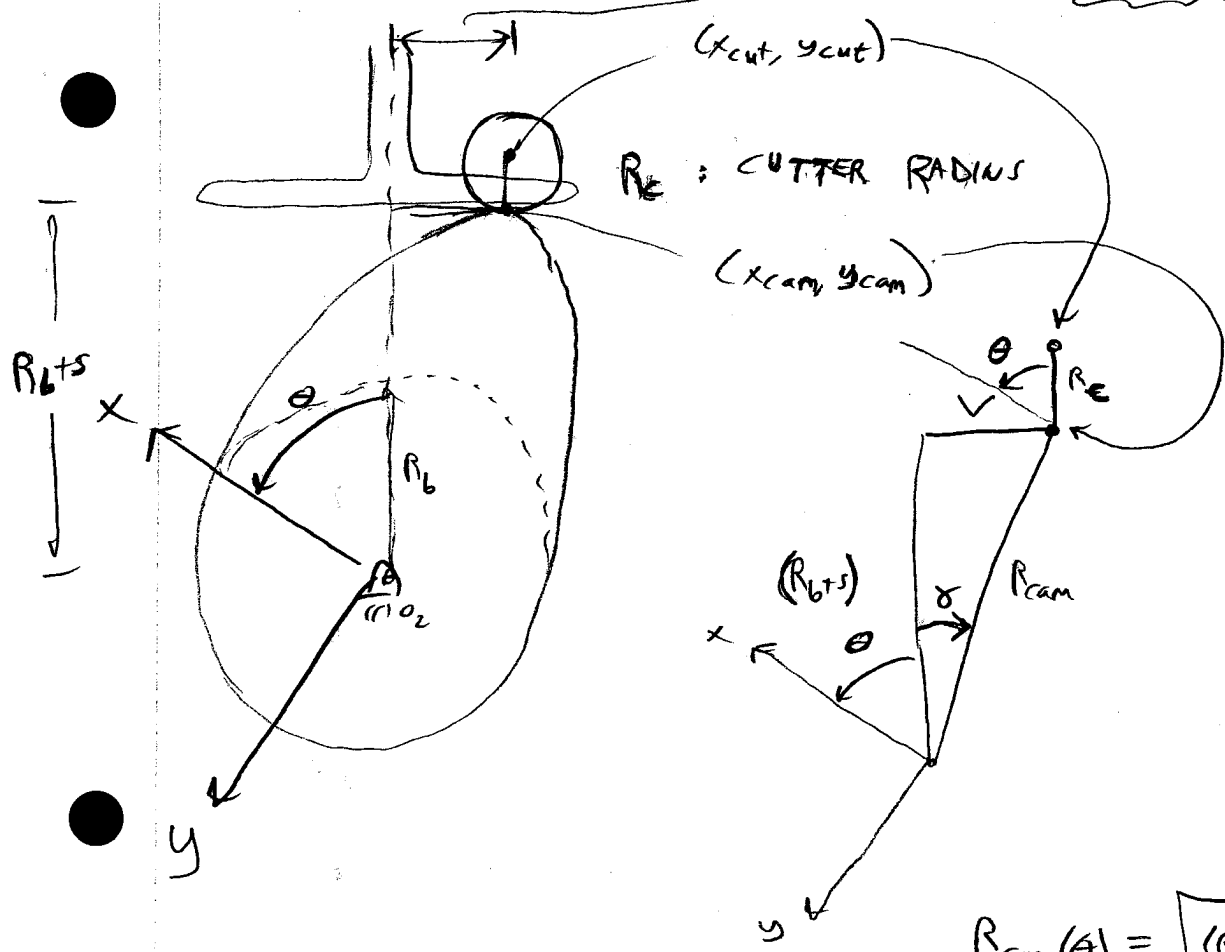 (xcut, ycut)
Rc : CUTTER RADIUS
(xcam, ycam)
Rb+s
x
θ
Rb
θ
O2
y
θ
Rc
V
(Rb+s)
γ
Rcam
x
θ
y
Rcam(θ) =